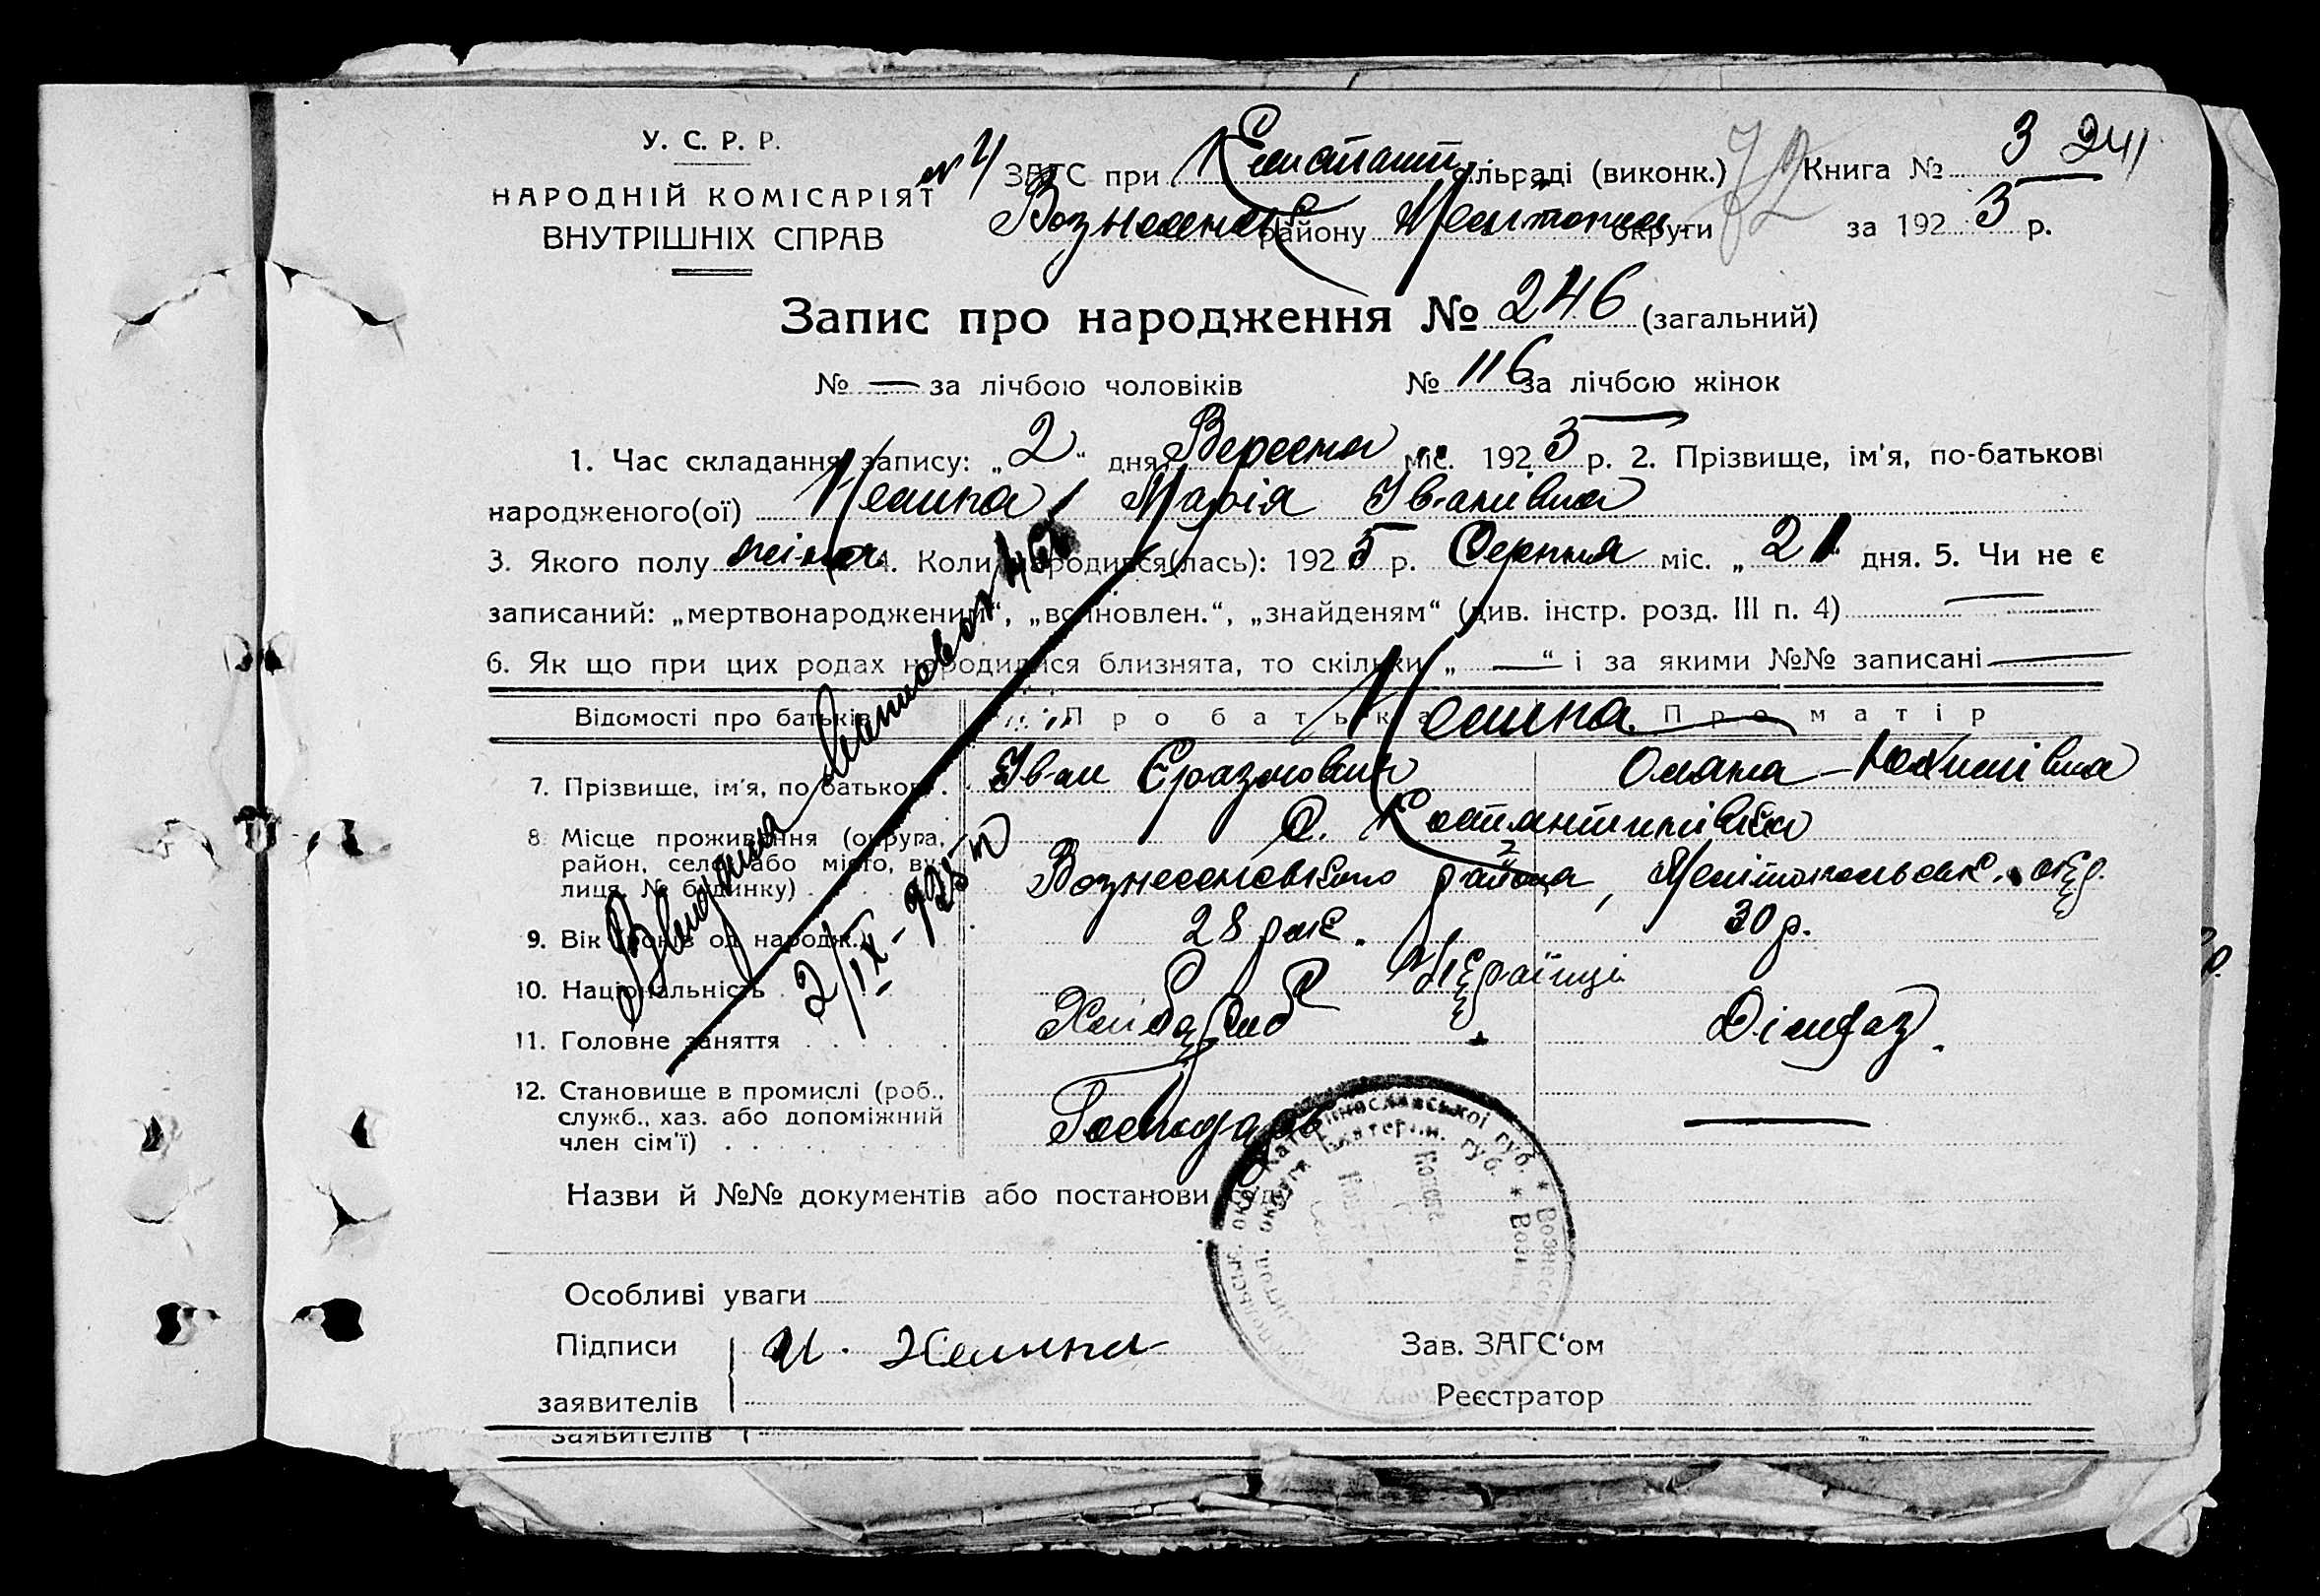 У. С. Р. Р.
НАРОДНІЙ КОМІСАРІЯТ
ВНУТРІШНІХ СПРАВ
ЗАГС при сільраді (виконк.) Книга № 3 241
району округи за 192 5 р.
72
Запис про народження № 246 (загальний)
№ — за лічбою чоловіків № 116 за лічбою жінок
1. Час складання запису: „ 2 “ дня Вересня міс. 192 5 р. 2. Прізвище, ім'я, по-батькові
народженого(ої) Марія Іванівна
3. Якого полу жіноч. 4. Коли народився(лась): 192 5 р. Серпня міс. „ 21 “ дня. 5. Чи не є
записаний: „мертвонародженим“, „всиновлен.“, „знайденям“ (див. інстр. розд. III п. 4) —
6. Як що при цих родах народилися близнята, то скільки „ — “ і за якими №№ записані —
Відомості про батьків Про батька Про матір
7. Прізвище, ім'я, по батькові . Іван Єразмович Оляна Юхимівна
8. Місце проживання (округа, С. Костянтинівка
район, село або місто, ву- Вознесенського району, Мелітопольськ. окр.
лиця, № будинку) . . .
9. Вік (років од народж.) 28 рок. 30 р.
10. Національність . . . Українці
11. Головне заняття . . . Хлібороб
12. Становище в промислі (роб.,
служб., хаз. або допоміжний Господарь —
член сім'ї) . . . .
Видана
2/IX-925 р
Назви й №№ документів або постанови суду
Особливі уваги
Підписи Зав. ЗАГС‘ом
заявителів Реєстратор
заявителів